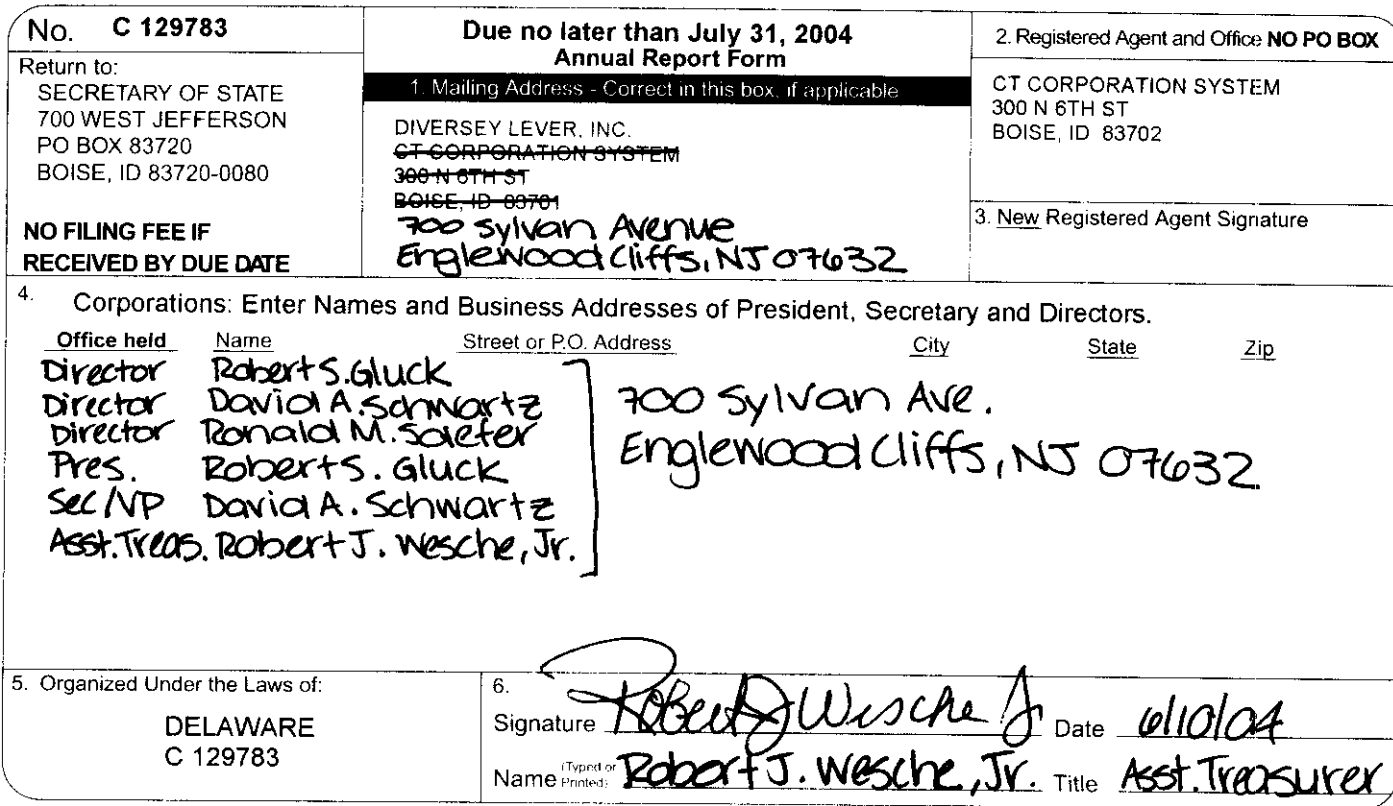 No. C 129783
Return to:
SECRETARY OF STATE
700 WEST JEFFERSON
PO BOX 83720
BOISE, ID 83720-0080
NO FILING FEE IF
RECEIVED BY DUE DATE
Due no later than July 31, 2004
Annual Report Form
1. Mailing Address - Correct in this box, if applicable
DIVERSEY LEVER, INC.
CT CORPORATION SYSTEM
300 N 6TH ST
BOISE, ID 83701
700 Sylvan Avenue
Englewood Cliffs, NJ 07632
2. Registered Agent and Office NO PO BOX
CT CORPORATION SYSTEM
300 N 6TH ST
BOISE, ID 83702
3. New Registered Agent Signature
4. Corporations: Enter Names and Business Addresses of President, Secretary and Directors.
Office held Name Street or P.O. Address City State Zip
Director Robert S. Gluck
Director David A. Schwartz
Director Ronald M.
Pres. Robert S. Gluck
Sec/VP David A. Schwartz
Asst. Treas. Robert J. Wesche, Jr.
700 Sylvan Ave.
Englewood Cliffs, NJ 07632
5. Organized Under the Laws of:
DELAWARE
C 129783
6.
Signature Robert J Wesche Jr Date 6/10/04
Name (Typed or Printed) Robert J. Wesche, Jr. Title Asst. Treasurer